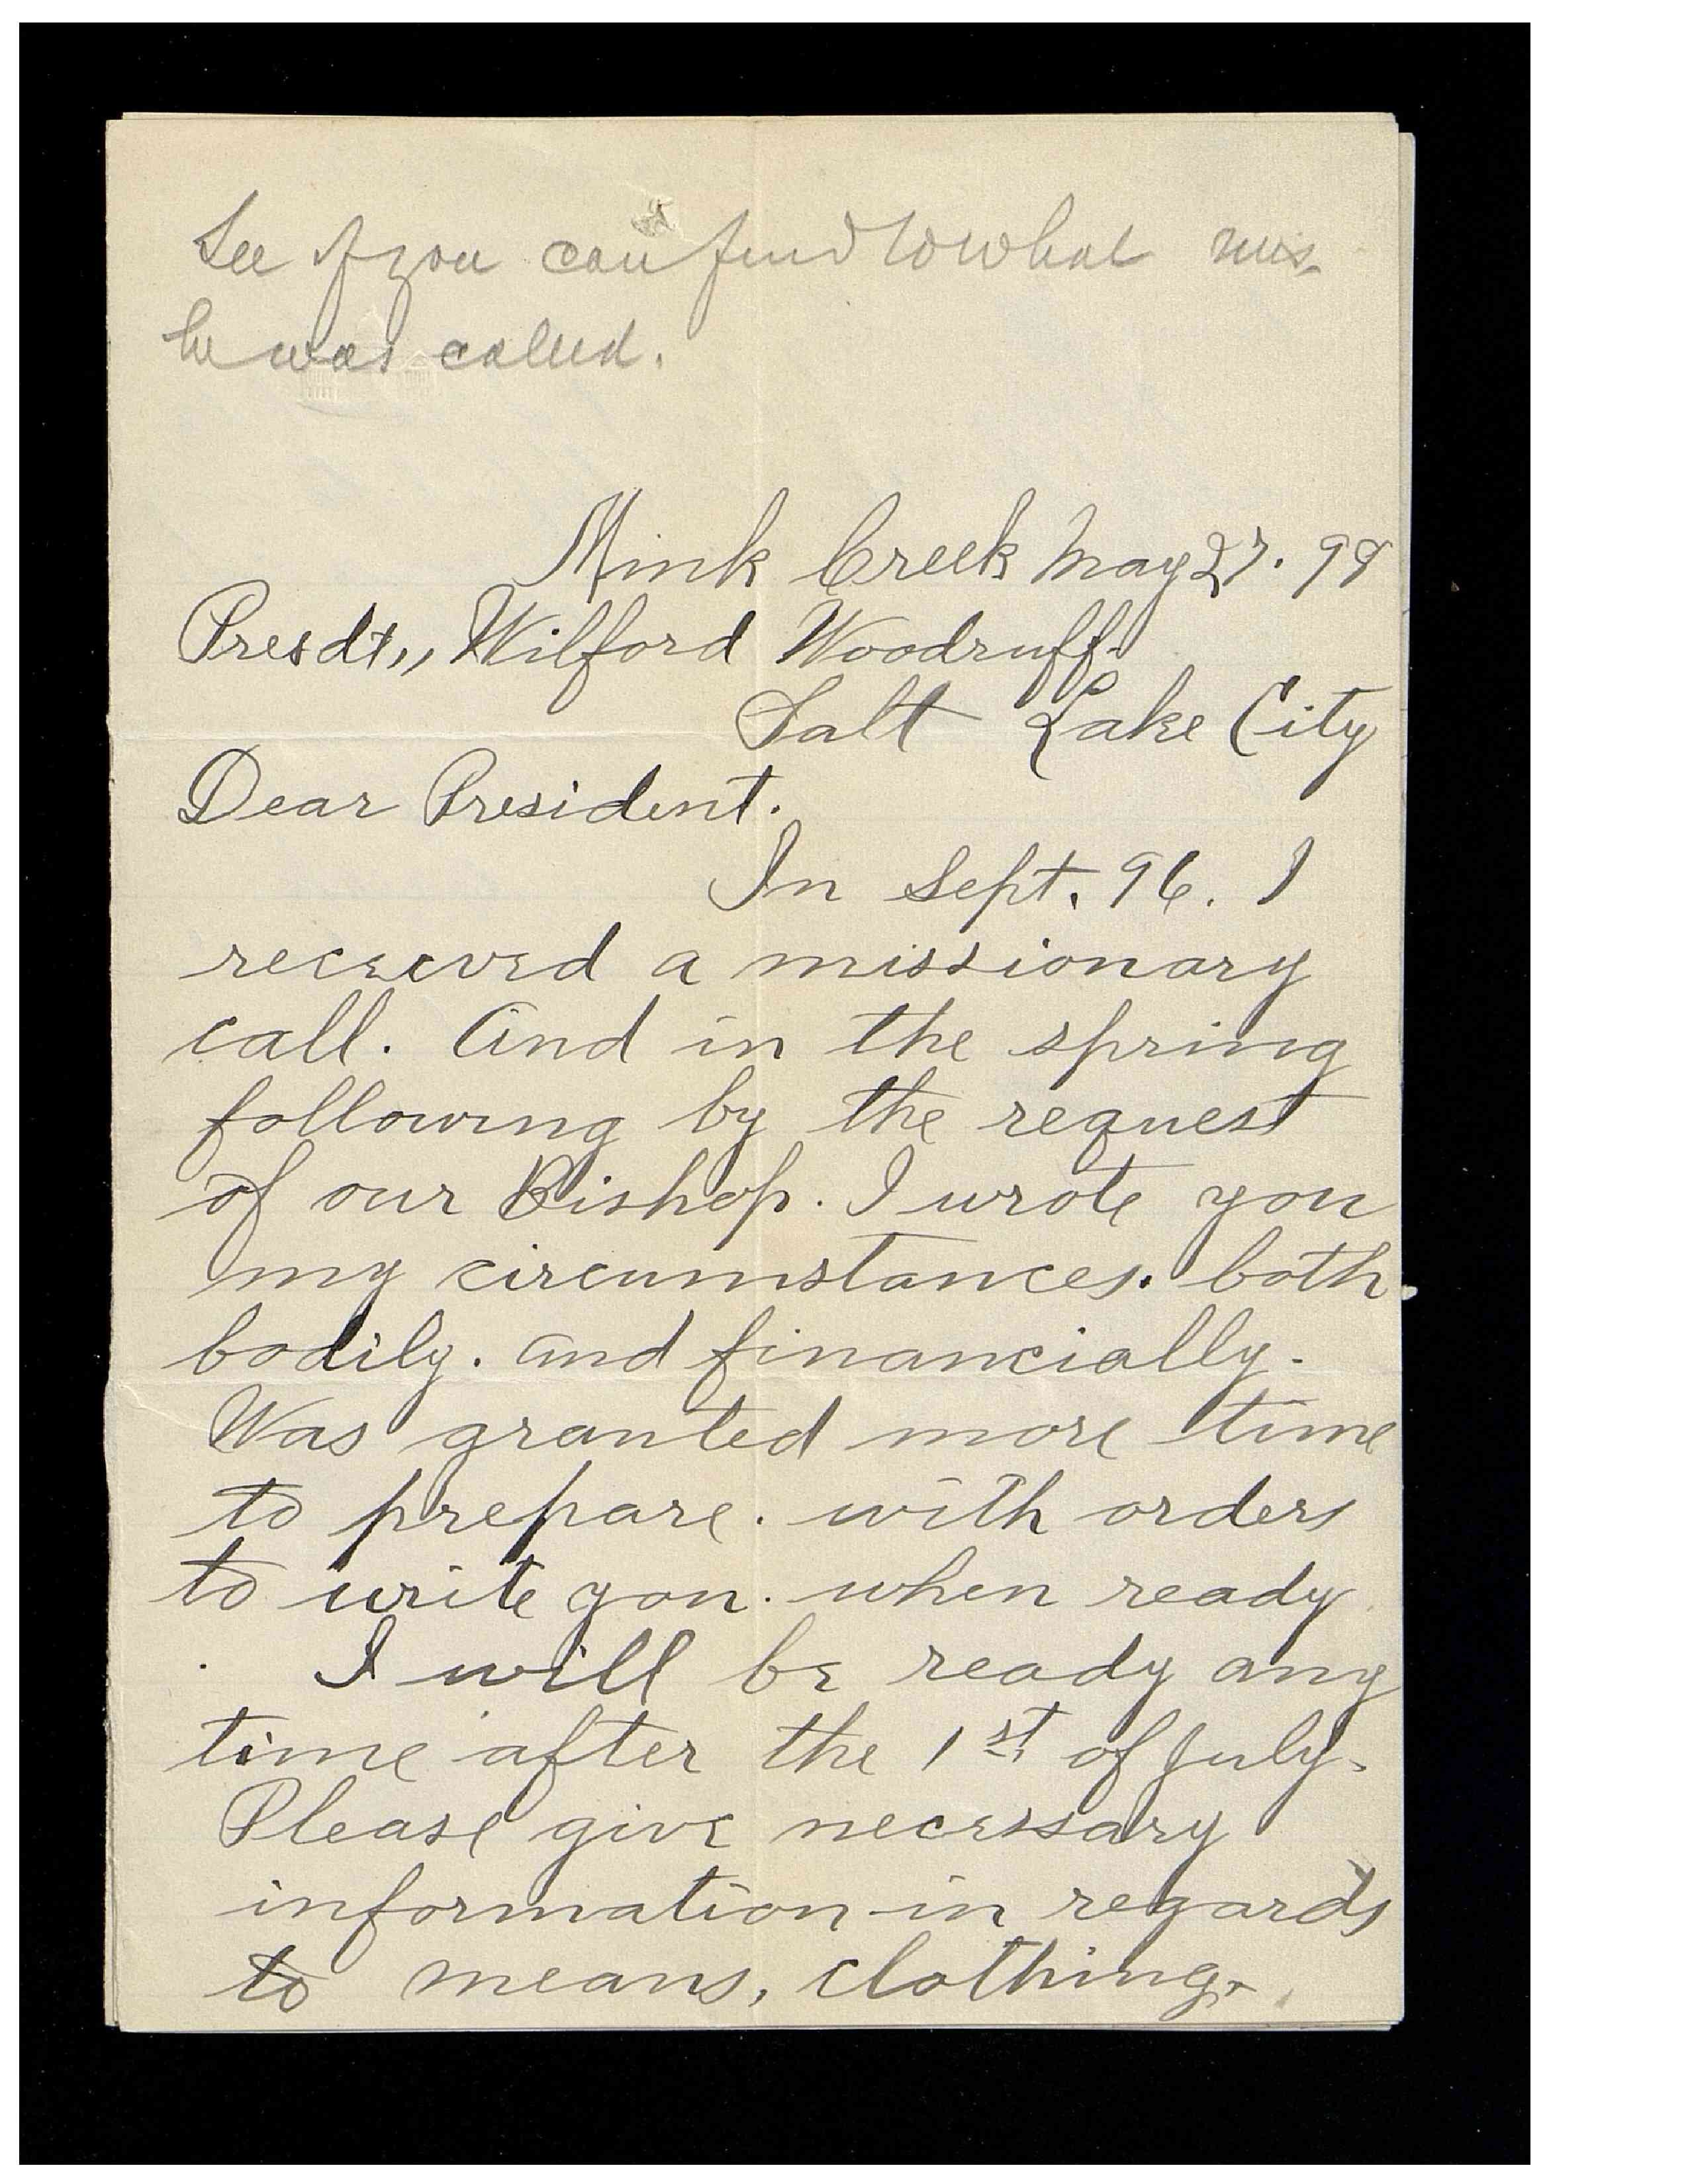 See if you can find to what mis.
he was called.
Mink Creek May 27. 98
Presdt,, Wilford Woodruff.
Salt Lake City
Dear President.
In Sept. 96. I
received a missionary
call. And in the spring
following by the request
of our Bishop. I wrote you
my circumstances. both
bodily. and financially.
Was granted more time
to prepare. with orders
to write you. when ready
I will be ready any
time after the 1st of July.
Please give necessary
information in regards
to means, clothing.